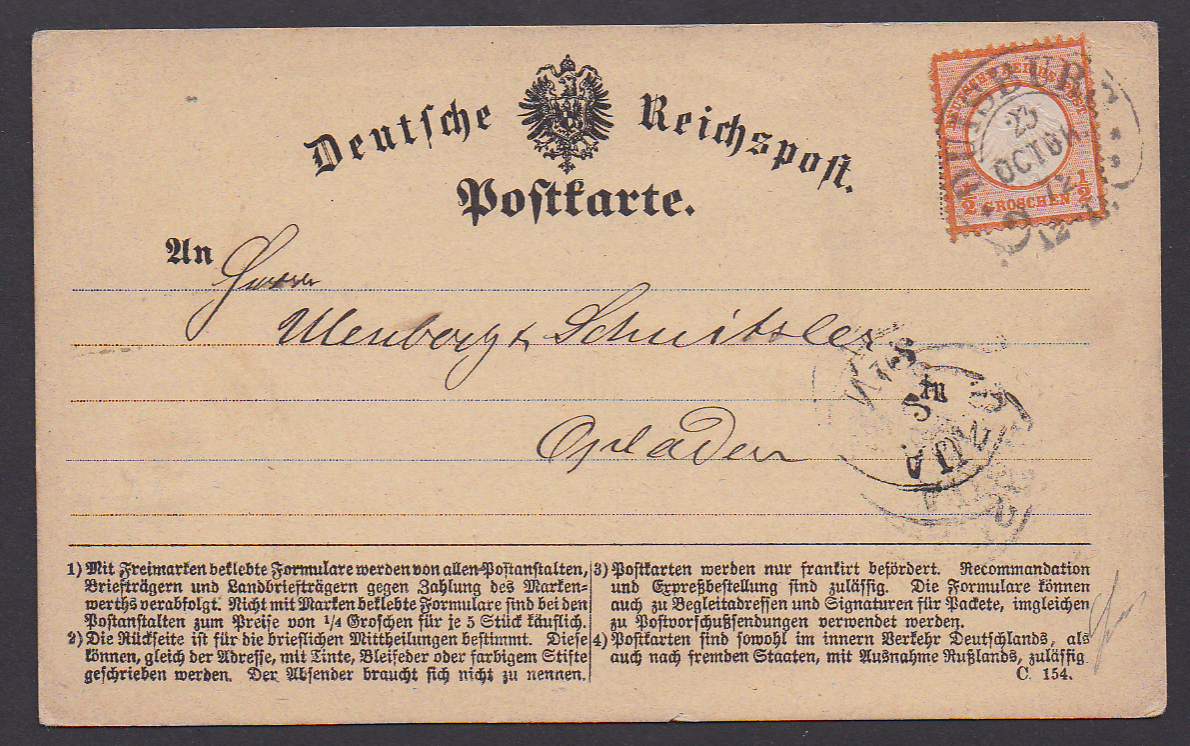 Deutsche Reichspost.
Postkarte.
DEUTSCHE REICHS POST
½ GROSCHEN ½
DUISBURG
23
OCTBR
72
12-1N.
An Herrn
Ulenberg & Schnitzler
in
Opladen
1) Mit Freimarken beklebte Formulare werden von allen Postanstalten,
Briefträgern und Landbriefträgern gegen Zahlung des Marken-
werths verabfolgt. Nicht mit Marken beklebte Formulare sind bei den
Postanstalten zum Preise von 1/4 Groschen für je 5 Stück käuflich.
2) Die Rückseite ist für die brieflichen Mittheilungen bestimmt. Diese
können, gleich der Adresse, mit Tinte, Bleifeder oder farbigem Stifte
geschrieben werden. Der Absender braucht sich nicht zu nennen.
3) Postkarten werden nur frankirt befördert. Recommandation
und Expreßbestellung sind zulässig. Die Formulare können
auch zu Begleitadressen und Signaturen für Packete, imgleichen
zu Postvorschußsendungen verwendet werden.
4) Postkarten sind sowohl im innern Verkehr Deutschlands, als
auch nach fremden Staaten, mit Ausnahme Rußlands, zulässig.
C. 154.